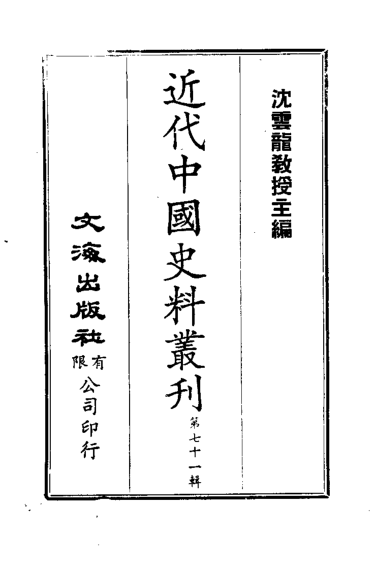 沈雲龍教授主編
近代中國史料叢刊第七十一輯
文海出版社有限公司印行